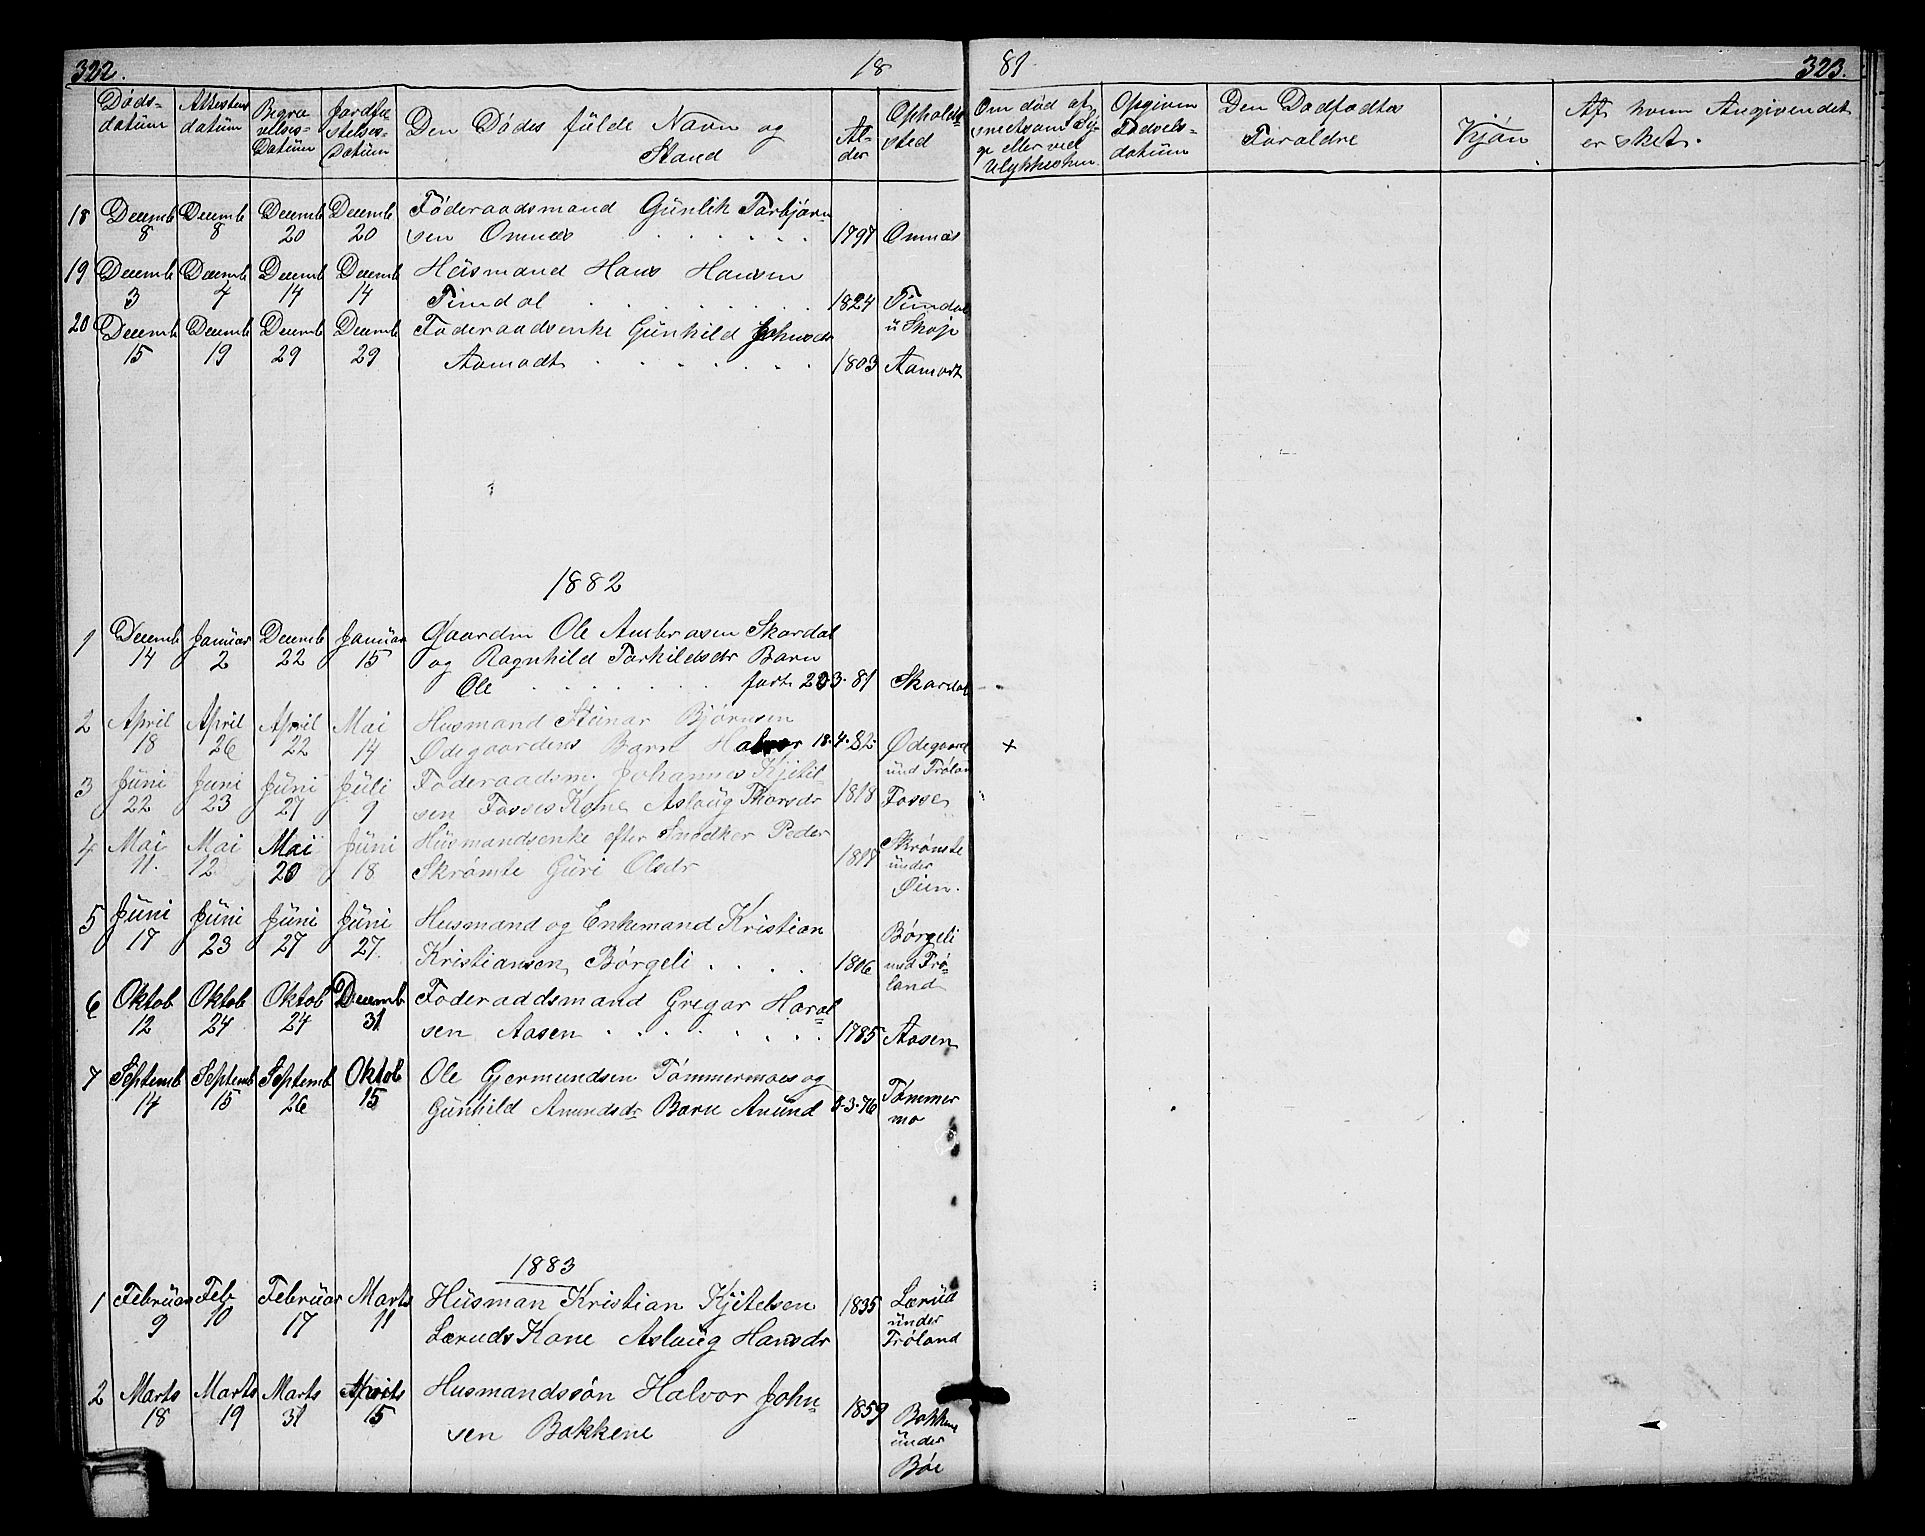 322. 18 81 323.
Døds-datum Attestens datum Begravelses-Datum Jordfæstelses-datum Den Dødes fulde Navn og Stand Alder Opholdssted Om død af smitsom Syge eller ved Ulykkeshen. Opgiven Fødselsdatum Den Dødfødtes Forældre Kjøn Af hvem Angivendet er sket.
18 Decemb 8 Decemb 8 Decemb 20 Decemb 20 Föderaadsmand Günlik Torbjörn=
sen Omnæs 1797 Omnæs
19 Decemb 3 Decemb 4 Decemb 14 Decemb 14 Hüsmand Hans Hansen
Timdal 1824 Timdal u Skoje
20 Decemb 15 Decemb 19 Decemb 29 Decemb 29 Föderaadsenke Günhild Johnsdr
Aamodt 1803 Aamodt
1882
1 Decemb 14 Januar 2 Decemb 22 Januar 15 Gaardm Ole Ambrosen Skardal
og Ragnhild Torkildsdr Barn
Ole født 3-81 Skardal
2 April 18 April 26 April 22 Mai 14 Husmand Steinar Bjørnsen
Ødegaardens Barn Halvor 18-4-82 Ødegaard und Trøland +
3 Jüni 22 Jüni 23 Jüni 27 Jüli 9 Føderaadsm. Johannes Kjetil-
sen Fosses Kone Aslaüg Thorsdr 1818 Fosse
4 Mai 11. Mai 12 Mai 20 Jüni 18 Hüsmandsenke efter Snedker Peder
Skrømte Güri Olsdr 1817 Skrømte ünder Øien.
5 Jüni 17 Jüni 23 Jüni 27 Jüni 27. Husmand og Enkemand Kristian
Kristiansen Børgeli 1806 Børgeli und Trøland
6 Oktob 12 Oktob 24 Oktob 24 Decemb 31 Føderaadsmand Gregar Haral
sen Aasen 1785 Aasen
7 Septemb 14 Septemb 15 Septemb 26 Oktob 15 Ole Gjermundsen Tömmermoes og
Günhild Anundsdr Barn Anünd 3-76 Tömmer mo
1883
1 Februar 9 Feb 10 Februar 17 Marts 11 Hüsman Kristian Kjetelsen
Lærüds Kone Aslaüg Hansdr 1835 Lærüd ünder Trøland
2 Marts 18 Marts 19 Marts 31 April 15 Husmandssön Halvor John=
sen Bakkene 1859 Bakken ünder Böe